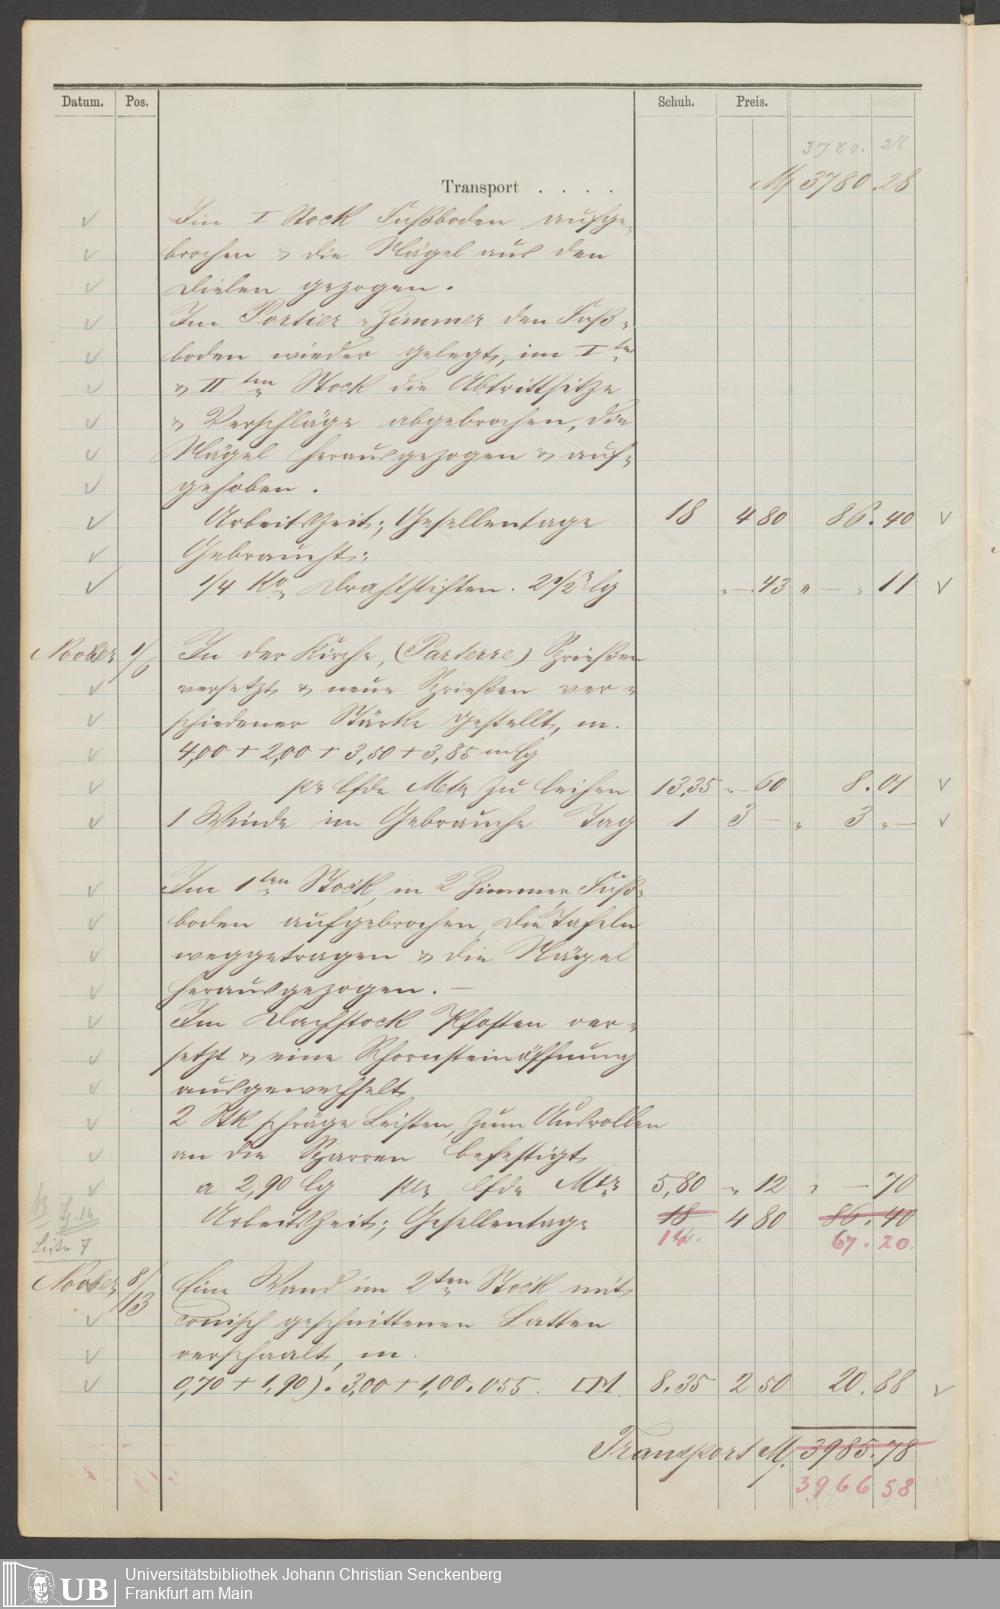 Datum. Pos. Schuh. Preis.
3780. 28
Transport . . . . M 3780.28
Im I Stock Fußboden aufge-
brochen & die Nägel aus den
Dielen gezogen.
Im Portier-Zimmer den Fuß-
boden wieder gelegt, im I ten
& II ten Stock die Abtrittsitze
& Verschläge abgebrochen, die
Nägel herausgezogen & auf-
gehoben.
Arbeitszeit; Gesellentage 18 4 80 86.40
Gebraucht:
1/4 Ko Drahtstiften. 2 1/2" lg „ — .43 „ — „ 11
Novber 1/6 In der Kirche, (Parterre) Sprießen
versetzt & neue Sprießen ver-
schiedener Stärke gestellt, m.
4,00 + 2,00 + 3,50 + 3,85 m lg
pr lfde Metr zu leihen 13,35 „ 60 8.01
1 Winde im Gebrauche Tag 1 3 — „ 3 „ —
Im 1ten Stock, in 2 Zimmer Fuß-
boden aufgebrochen, die Tafeln
weggetragen & die Nägel
herausgezogen. —
Im Dachstock Pfosten ver-
setzt & eine Schornsteinöffnung
ausgewechselt
2 Stk schräge Leisten, zum Ausrollen
an die Sparren befestigt
a 2,90 lg pr lfde Mtr 5,80 „ 12 „ — 70
Arbeitszeit; Gesellentage 18 4 80 86.40
14. 67.20.
Seite 7
Novber 8/13 Eine Wand im 2ten Stock mit
conisch geschnittenen Latten
verschaalt, m.
0,70 + 1,90). 3,00 + 1,00. 055. □M. 8.35 2 50 20.88
Transport M. 3985.78
3966 58
UB Universitätsbibliothek Johann Christian Senckenberg
Frankfurt am Main